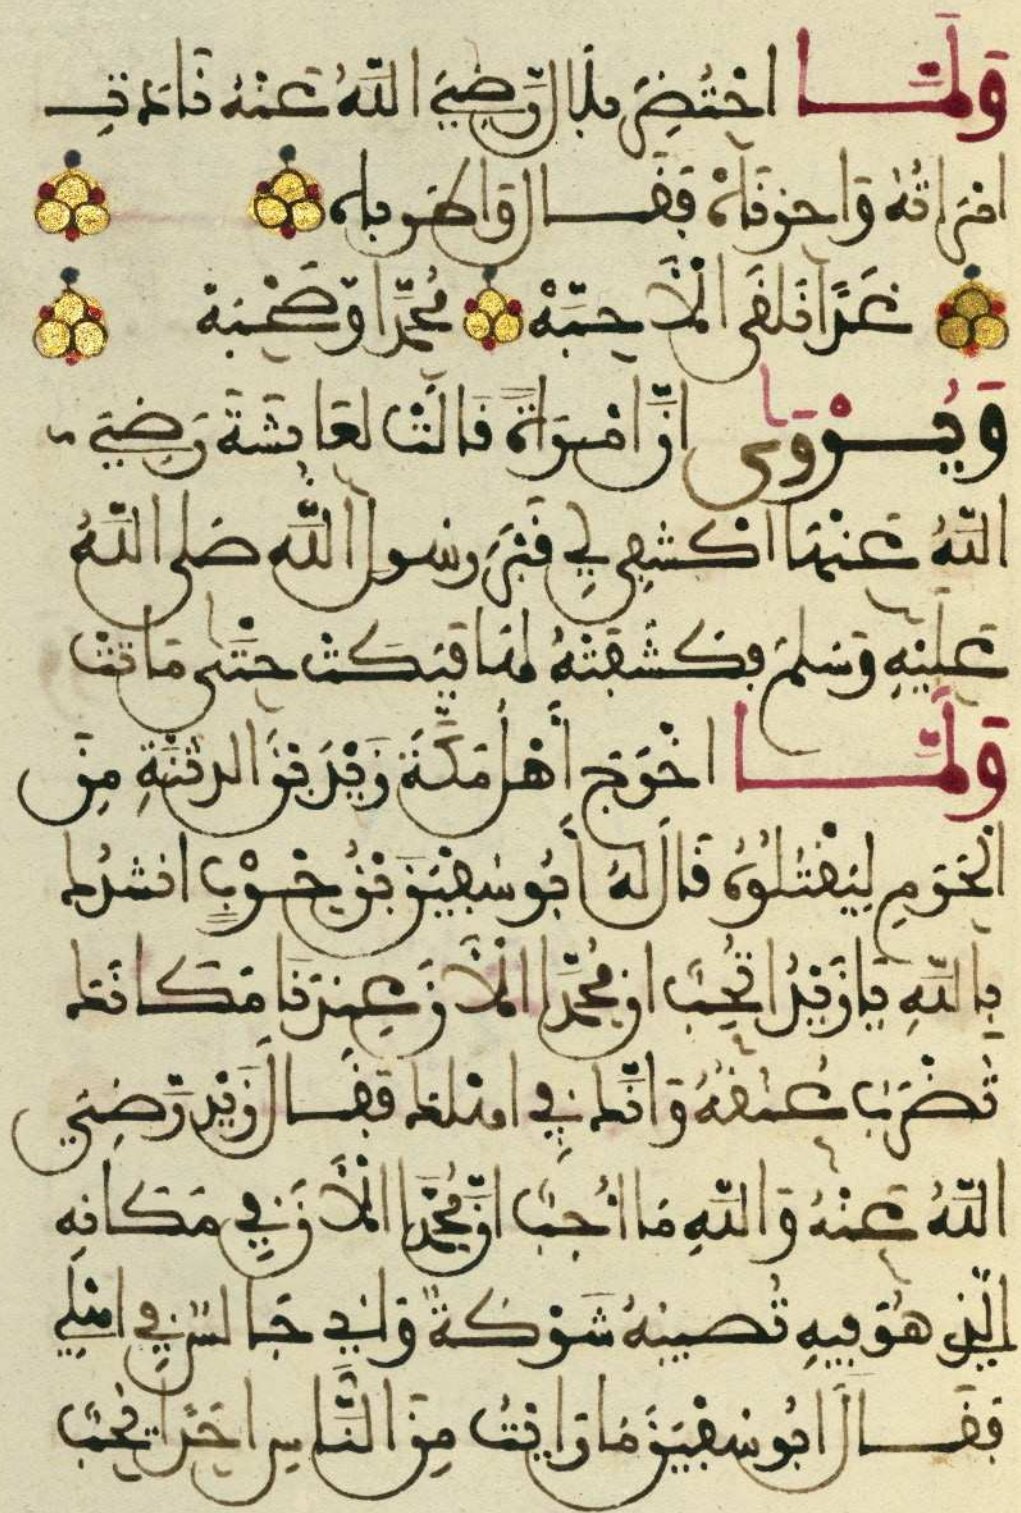 وَلَمَّا احْتُضِرَ بلَالٌ رَّضِيَ اللَّهُ عَنْهُ نَادَتِ
امْرَأَتُهُ وَاحزنَاهْ فَقَالَ وَاطَرباه
غَدًا نَلقَى الْأَحِبَّهْ مُحمَّدًا وَصَحْبَهْ
وَيُرْوَى انَّ امْرَأَةً قَالَتْ لعَايشَةَ رَضِيَ
اللَّهُ عَنْهَا اكْشفِي لِي قَبْرَ رسُول اللَّه صَلى اللَّهُ
عَلَيْهِ وَسَلمَ فكَشَفَتْهُ لهَا فَبَكَتْ حَتَّى مَاتَتْ
وَلَمَّا اخْرَجَ أَهْلُ مَكَّةَ زَيْدَ بْنَ الدثنَّةِ مِنَ
الْحَرَمِ لِيَقْتُلُوهُ قَالَ لَهُ أَبُو سُفْيَنَ بْنُ حَرْبٍ انشدُك
بِاللَّهِ يَا زَيْدُ اتُحِبُّ ان مُحمَّدًا الْأَنَ عِندَنَا مَكَانَك
تُضْرَبُ عُنُقُهُ وَانَّك فِي اهْلك فَقَالَ زَيْد رَّضِيَ
اللَّهُ عَنْهُ وَاللَّهِ مَا اُحِبُّ انَّ مُحَمَّدًا الْأَنَ فِي مَكَانِهِ
الَّذِي هُوَ فِيهِ تُصِيبُهُ شَوْكَةٌ وَانِي جَالسٌ فِي اهْلِي
فَقَالَ ابُو سفْيَنَ مَا رَايْتُ مِنَ النَّاسِ احَدًا يُحِبُّ